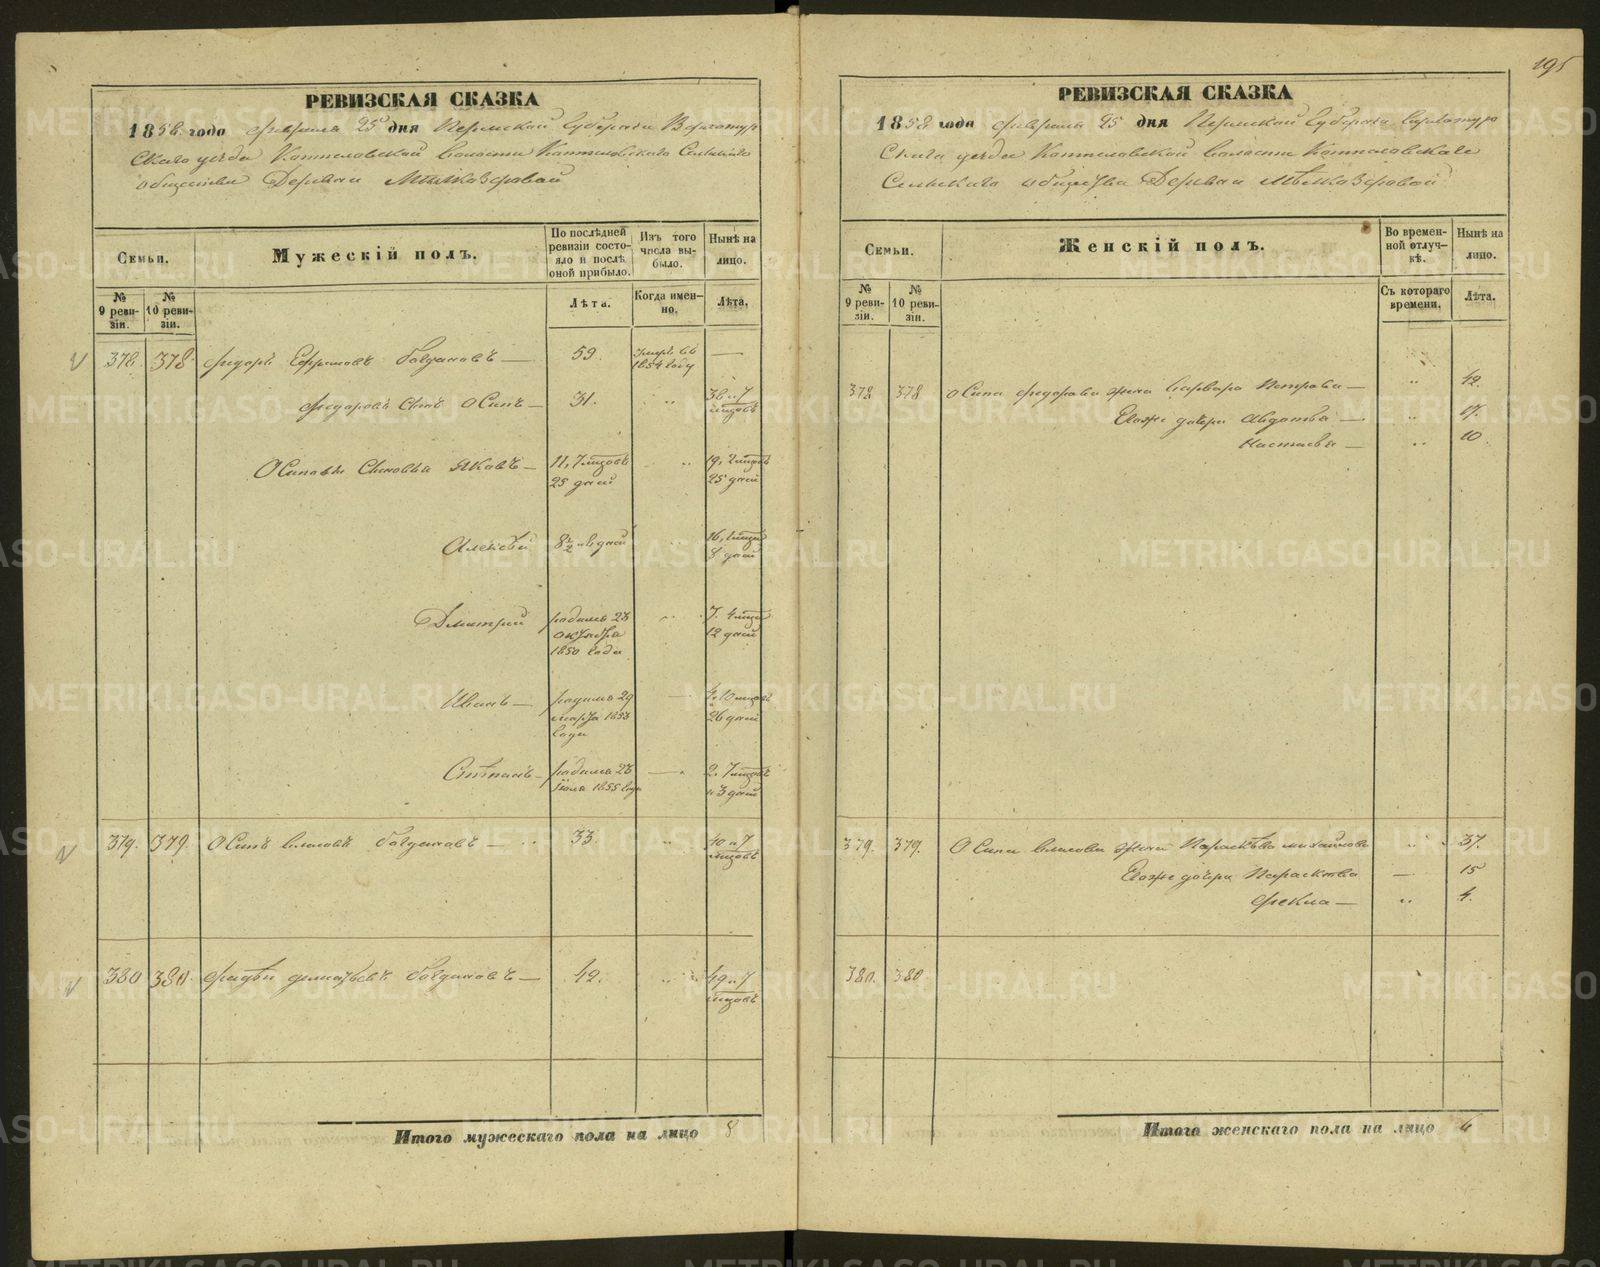 195
РЕВИЗСКАЯ СКАЗКА
1858 года февраля 25 дня Пермской Губернии Верхотур
скаго уезда Коптеловской волости Коптеловскаго Сельскаго
общества Деревни
Семьи.
Мужескій полъ.
По послѣдней ревизіи состояло и послѣ оной прибыло.
Изъ того числа выбыло.
Нынѣ на лицо.
№ 9 ревизіи.
№ 10 ревизіи.
Лѣта.
Когда именно.
Лѣта.
378 378 Федоръ Ефремовъ Богдановъ — 59. умеръ въ 1854 году —
Федоровъ сынъ Осипъ — 31. " 38 и 7 мѣсяцовъ
Осиповы сыновья Яковъ — 11, 7 мѣсяцовъ 25 дней " 19, 2 мѣсяцовъ 25 дней
Алексей 8 1/2 дней 16, 8 дней
Дмитрий родился 23 октября 1850 года " 7. 4 мѣсяца 12 дней
Иванъ — родился 29 марта 1853 года — 4. 10 мѣсяцовъ 26 дней
Степанъ — родился 23 Іюля 1855 года — 2. 7 мѣсяцовъ 3 дней
379. 379. Осипъ Власовъ Богдановъ — 33. " 40 и 7 мѣсяцовъ
380 380. Богдановъ — 42. " 49 и 7 мѣсяцовъ
Итого мужескаго пола на лицо 8
РЕВИЗСКАЯ СКАЗКА
1858 года февраля 25 дня Пермской Губернии Верхотур
скаго уезда Коптеловской волости Коптеловскаго
Сельскаго общества Деревни
Семьи.
Женскій полъ.
Во временной отлучкѣ.
Нынѣ на лицо.
№ 9 ревизіи.
№ 10 ревизіи.
Съ котораго времени.
Лѣта.
378 378 Осипа Федорова жена Варвара Петрова — " 42.
Его же дочери Авдотья — " 17.
Настасья — " 10.
379. 379. Осипа Власова жена Параскева Михайлова " 37.
Его же дочери Параскева — 15
Фекла — " 4.
380. 380
Итого женскаго пола на лицо 6
METRIKI.GASO-URAL.RU